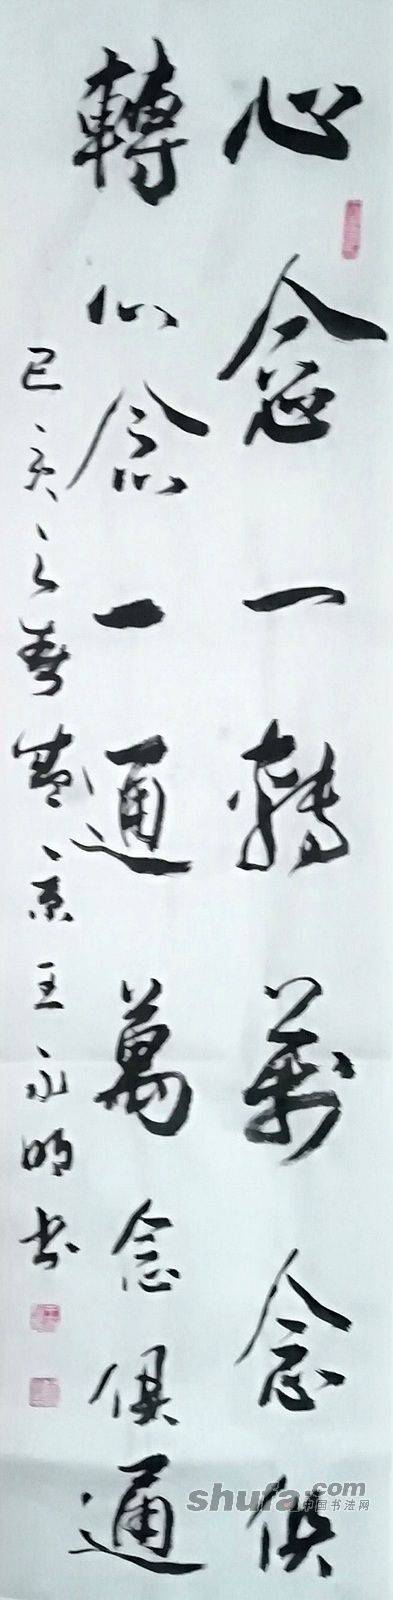 心念一轉萬念俱
轉心念一通萬念俱通
己亥之春盘京王永明书
shufa.com
中国书法网